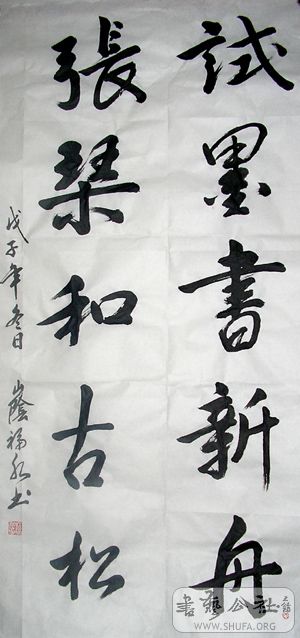 試墨書新舟
張琴和古松
戊子年冬日 山陰福 书
書藝公社
WWW.SHUFA.ORG